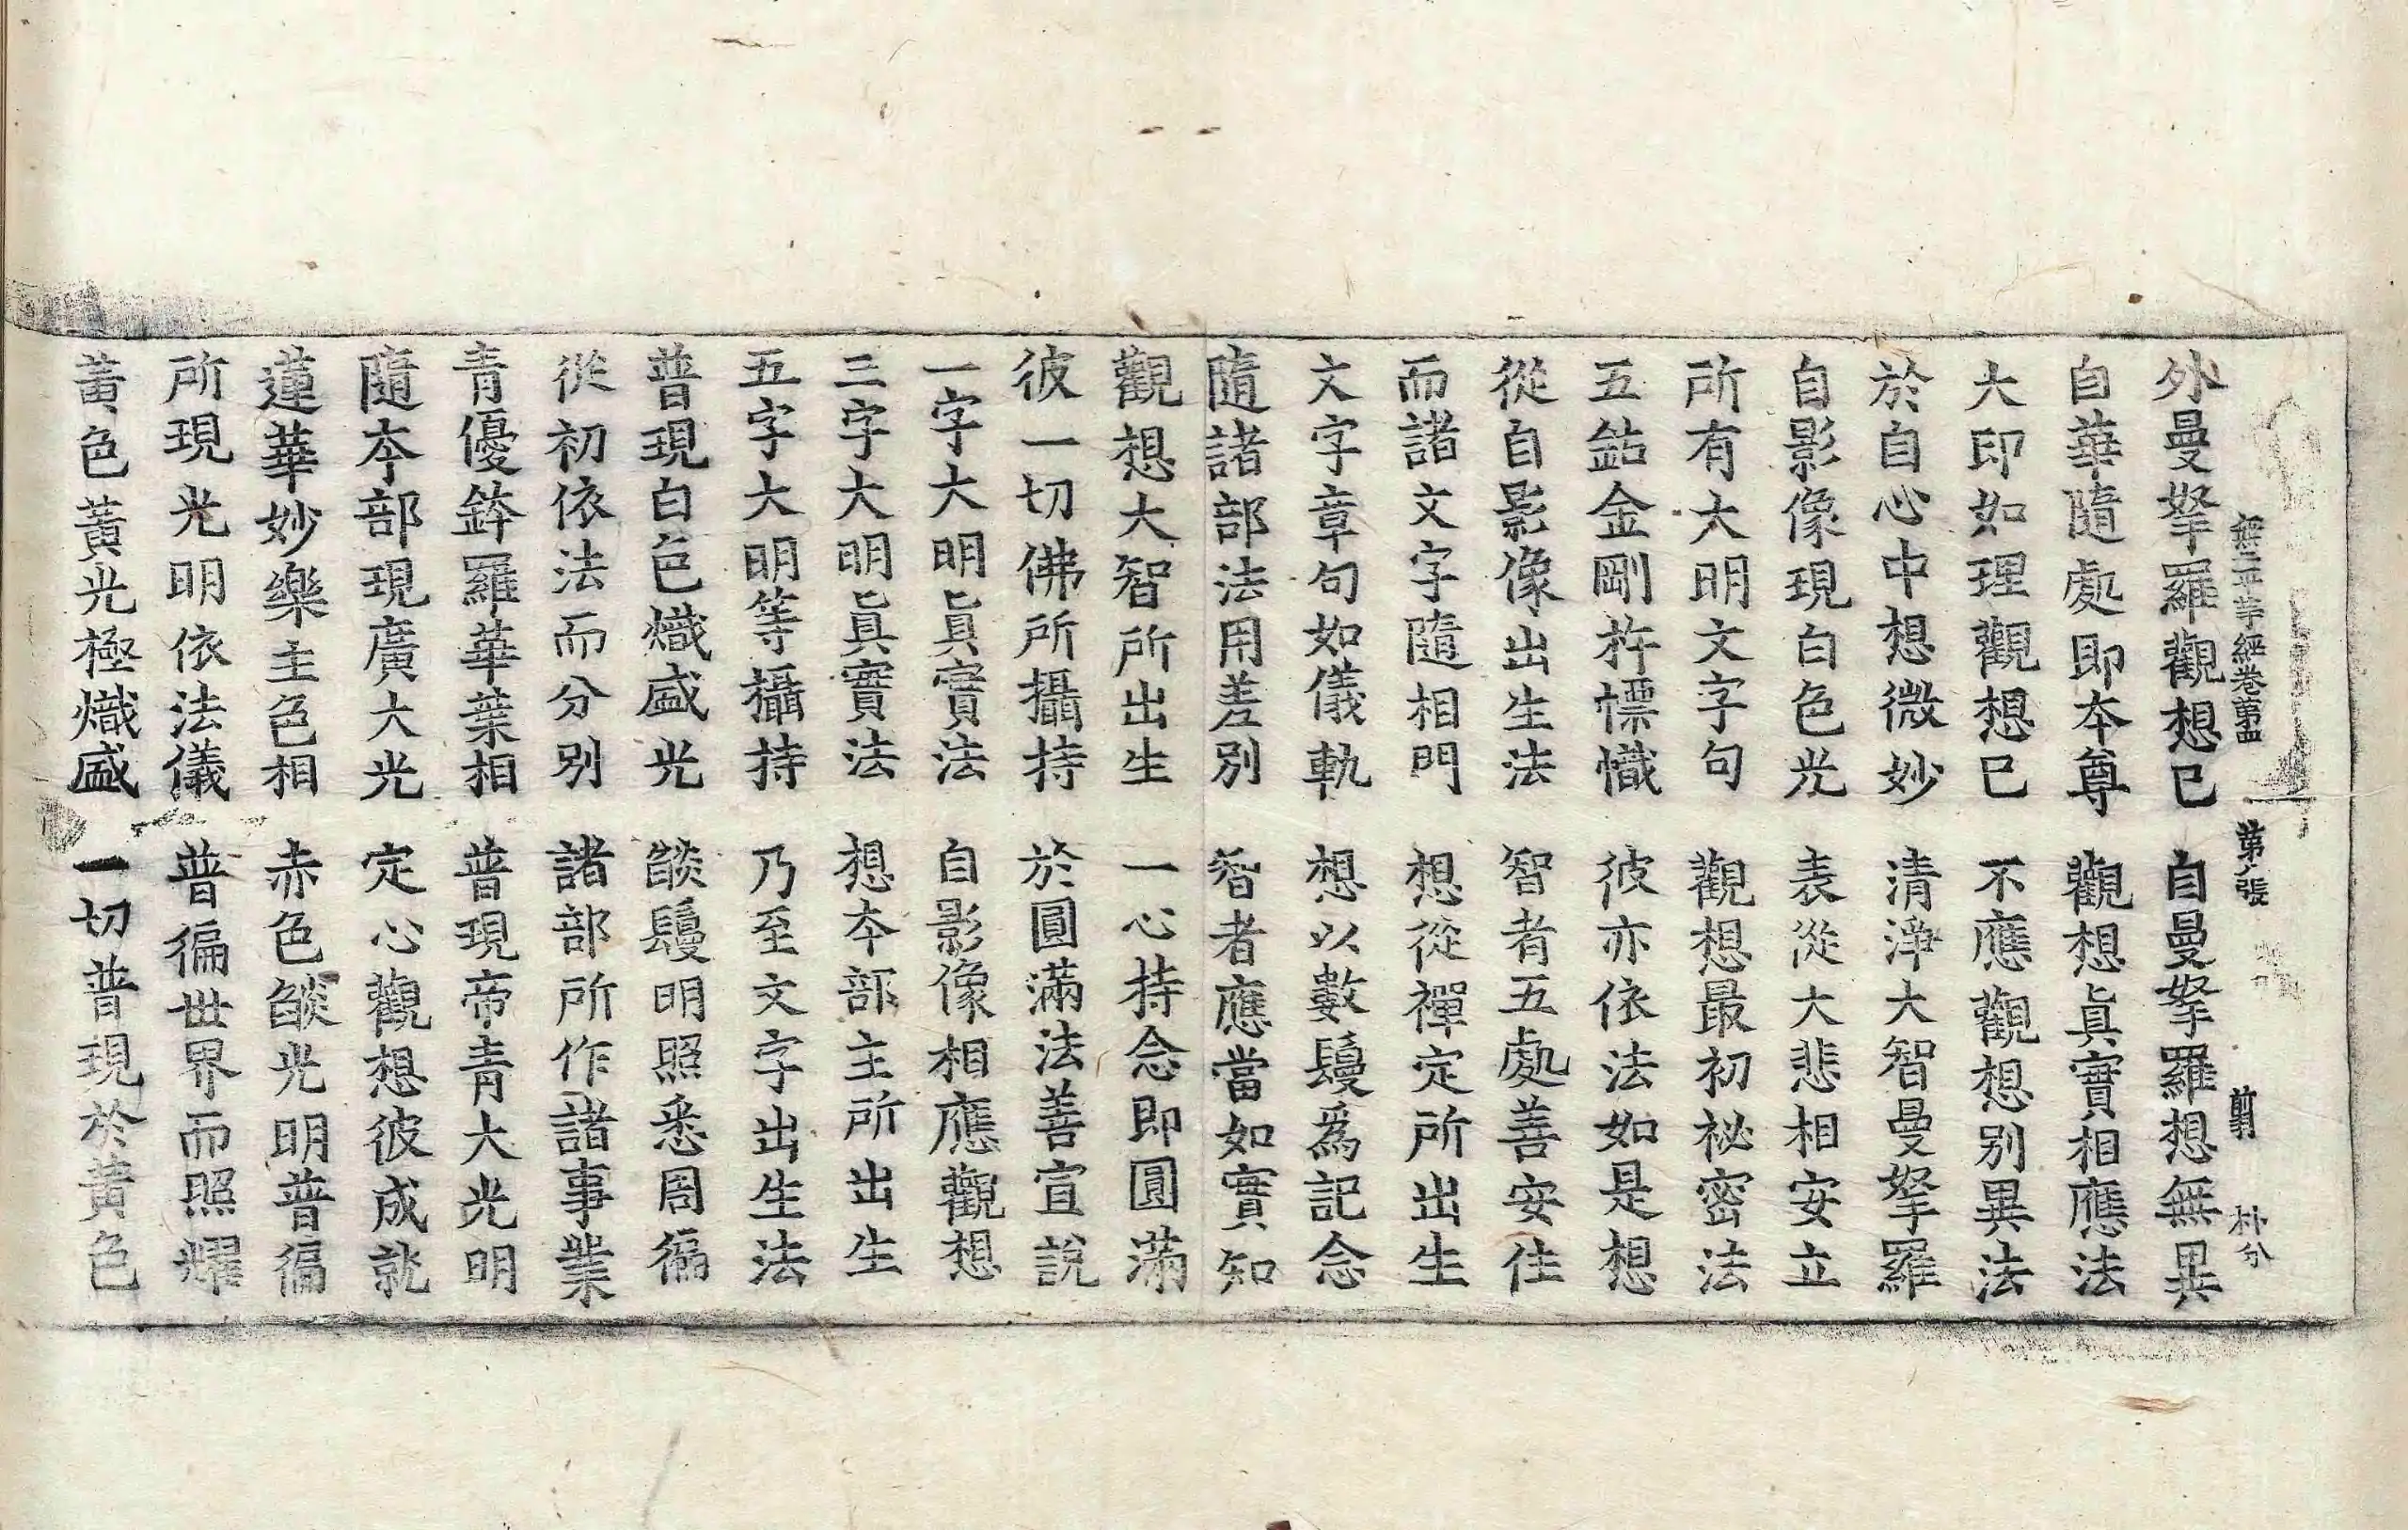 無二平等經卷第四 第八張 前 朴分
外曼拏羅觀想已 自曼拏羅想無異
自華隨處即本尊 觀想眞實相應法
大印如理觀想已 不應觀想別異法
於自心中想微妙 清淨大智曼拏羅
自影像現白色光 表從大悲相安立
所有大明文字句 觀想最初祕密法
五鈷金剛杵幖幟 彼亦依法如是想
從自影像出生法 智者五處善安住
而諸文字隨相門 想從禪定所出生
文字章句如儀軌 想以數鬘爲記念
隨諸部法用差別 智者應當如實知
觀想大智所出生 一心持念即圓滿
彼一切佛所攝持 於圓滿法善宣說
一字大明眞實法 自影像相應觀想
三字大明眞實法 想本部主所出生
五字大明等攝持 乃至文字出生法
普現白色熾盛光 燄鬘明照悉周徧
從初依法而分別 諸部所作諸事業
青優鉢羅華葉相 普現帝青大光明
隨本部現廣大光 定心觀想彼成就
蓮華妙樂主色相 赤色燄光明普徧
所現光明依法儀 普徧世界而照耀
黃色黃光極熾盛 一切普現於黃色